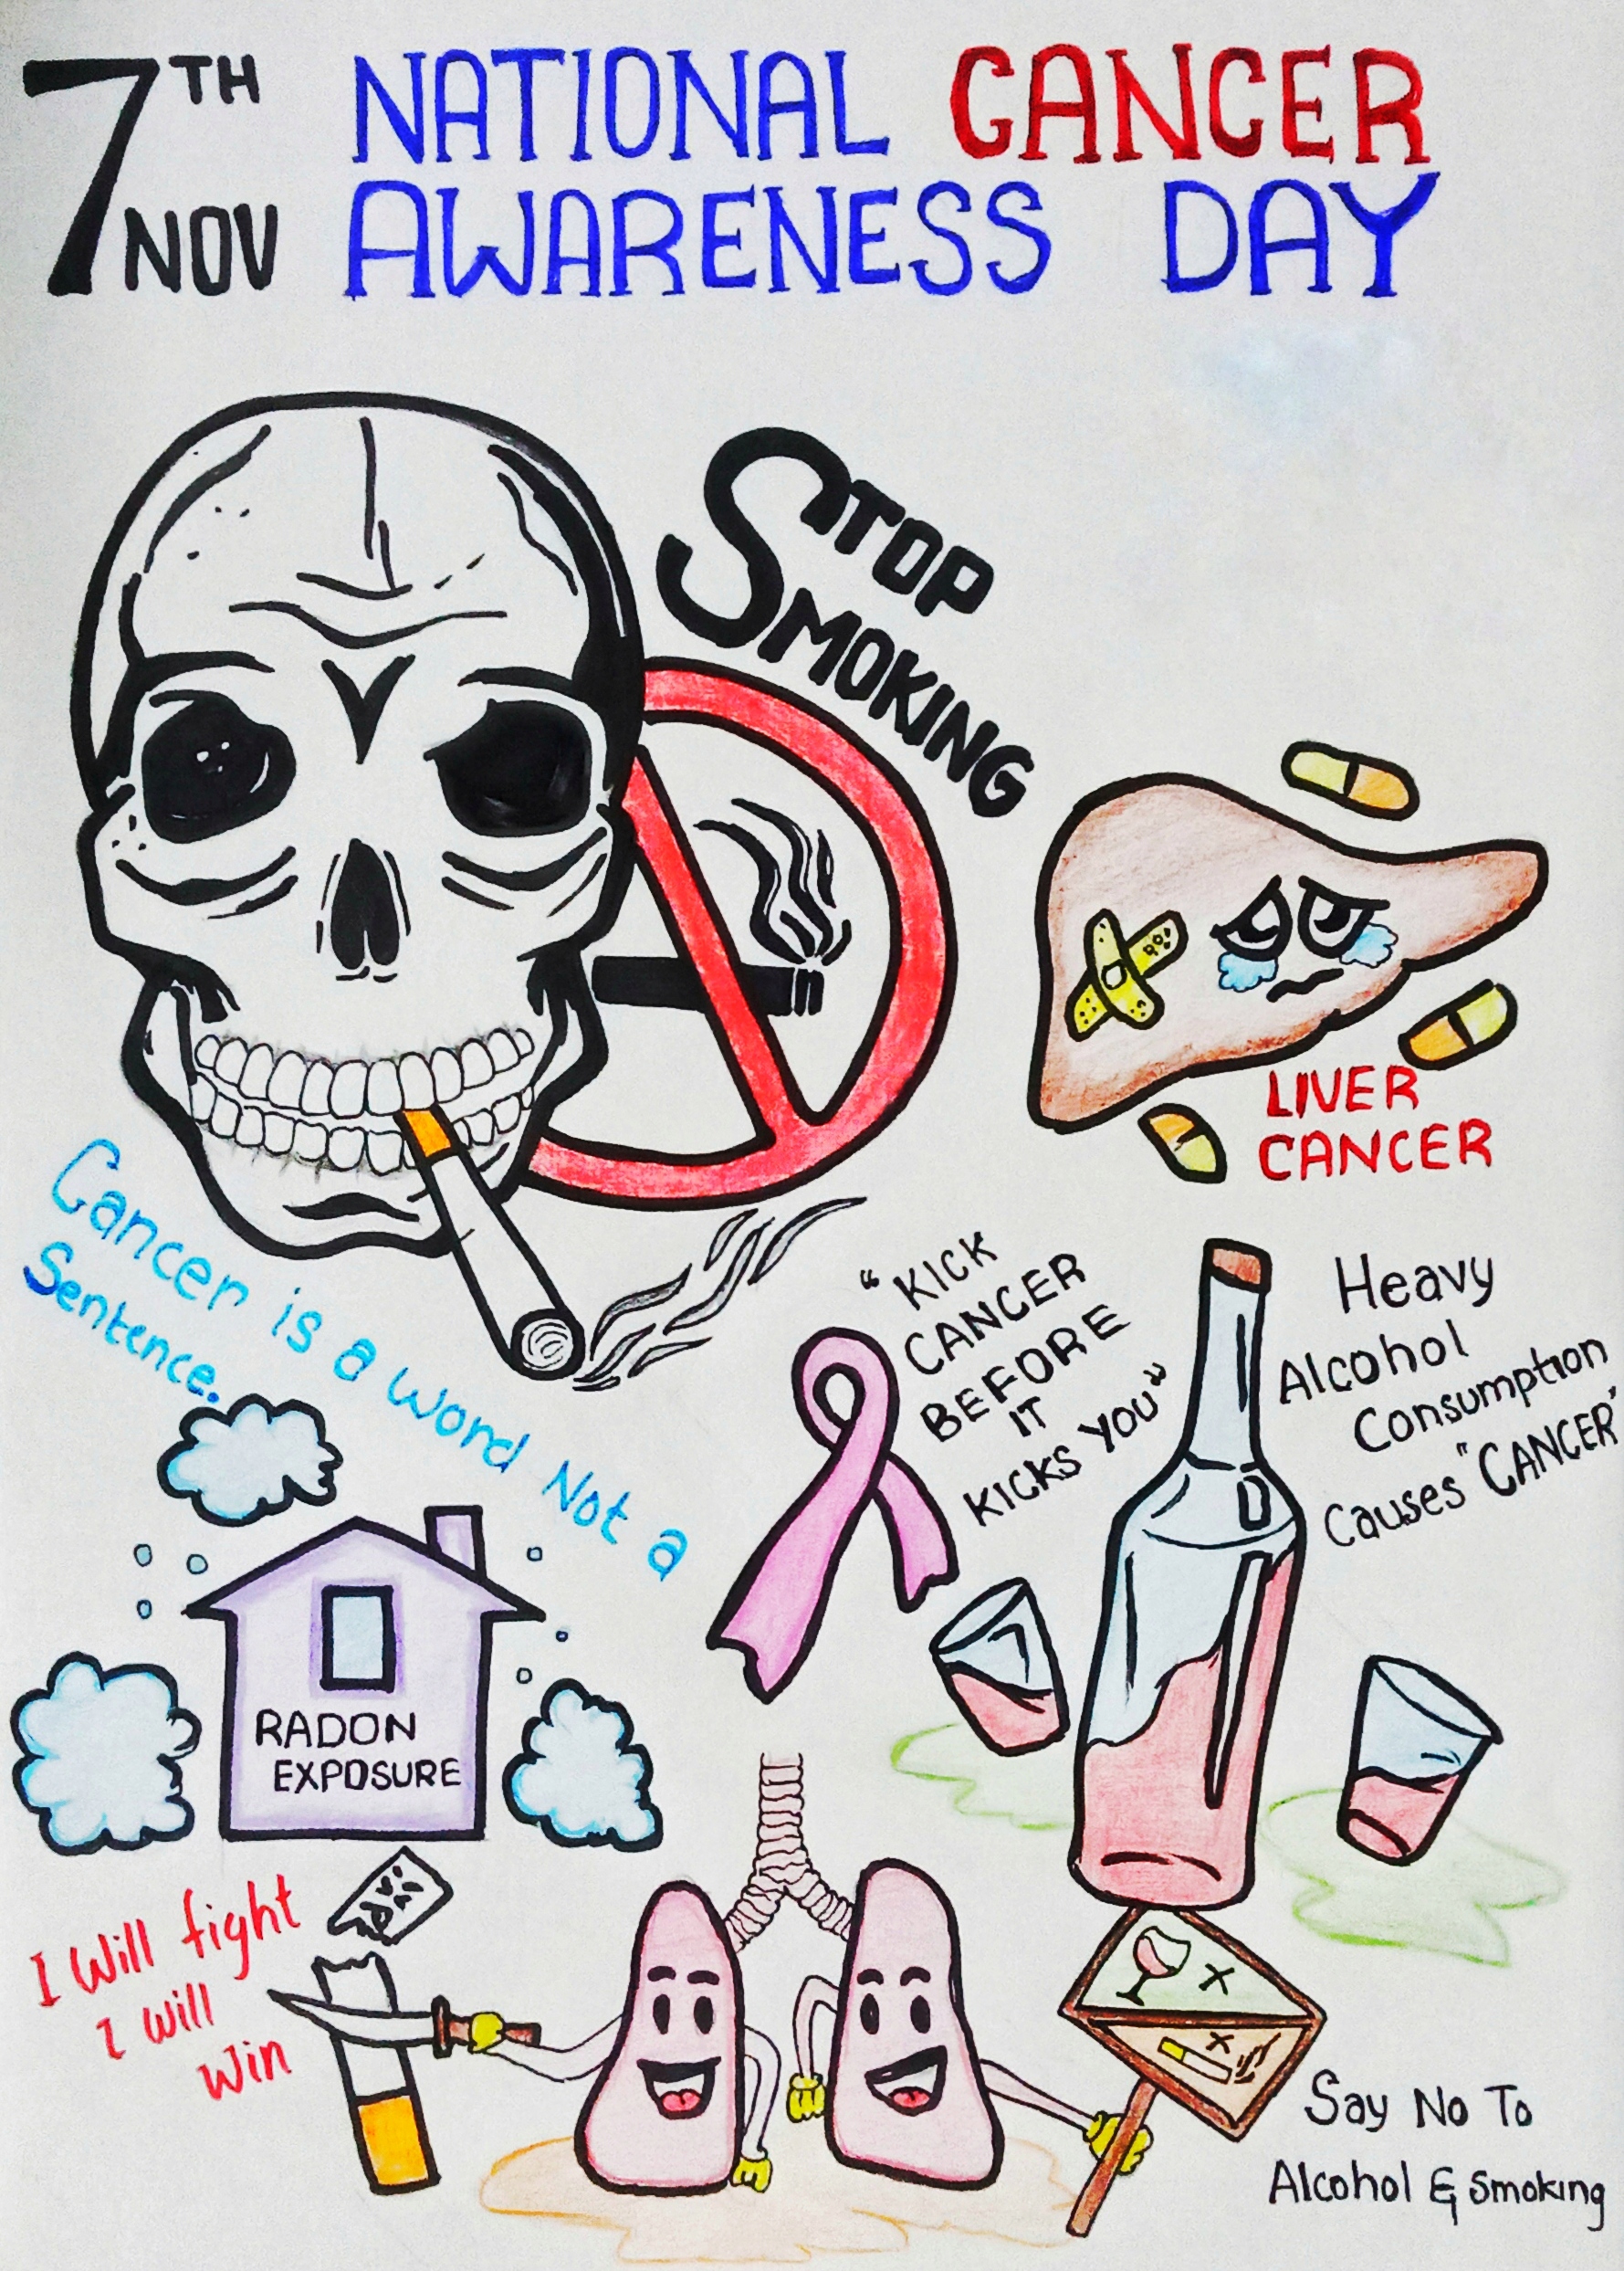 7TH NOV
NATIONAL CANCER
AWARENESS DAY
STOP
SMOKING
LIVER
CANCER
Cancer is a word Not a
Sentence.
"KICK
CANCER
BEFORE
IT
KICKS YOU"
Heavy
Alcohol
Consumption
Causes "CANCER"
RADON
EXPOSURE
I Will fight
I will
Win
Say No To
Alcohol & Smoking